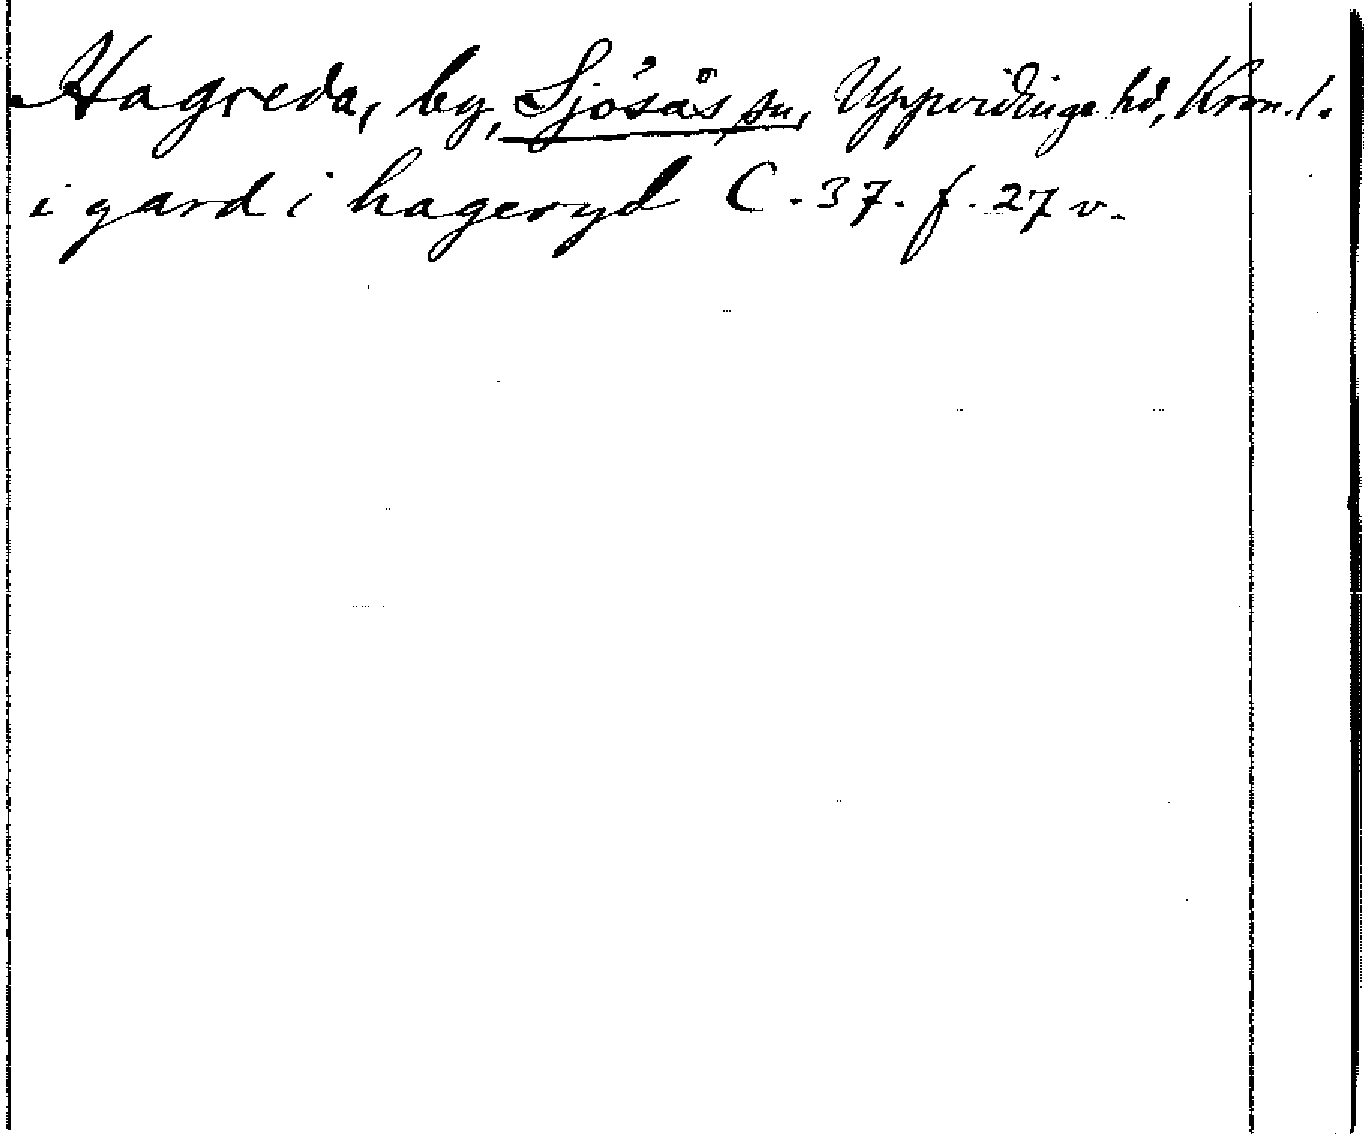 Hagreda, by, Sjösås sn, Uppvidinge hd, Kron. l.
i gard i hageryd C. 37. f. 27 v.